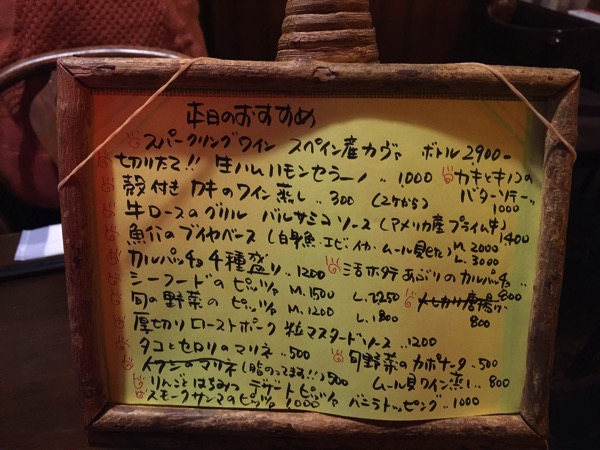 本日のおすすめ
スパークリングワイン スペイン産カヴァ ボトル 2900-
切りたて!! 生ハム ハモンセラーノ .. 1000
カキとキノコの
バターソテー
1000
殻付き カキのワイン蒸し .. 300 (2ケから)
牛ロースのグリル バルサミコソース (アメリカ産プライム牛)
1400
魚介のブイヤベース (白身魚・エビ・イカ・ムール貝など) M. 2000
L. 3000
カルパッチョ 4種盛り .. 1200
活ホタテ あぶりのカルパッチョ
800
シーフードのピッツァ M. 1500 L. 2250
旬の野菜の ピッツァ M. 1200 L. 1800
唐揚げ
800
厚切りローストポーク 粒マスタードソース .. 1200
タコとセロリのマリネ .. 500
旬野菜のカポナータ .. 500
イワシのマリネ (脂のってます!!) 500
ムール貝ワイン蒸し .. 800
りんごとはちみつ デザートピッツァ
スモークサンマのピッツァ 1000 バニラトッピング .. 1000